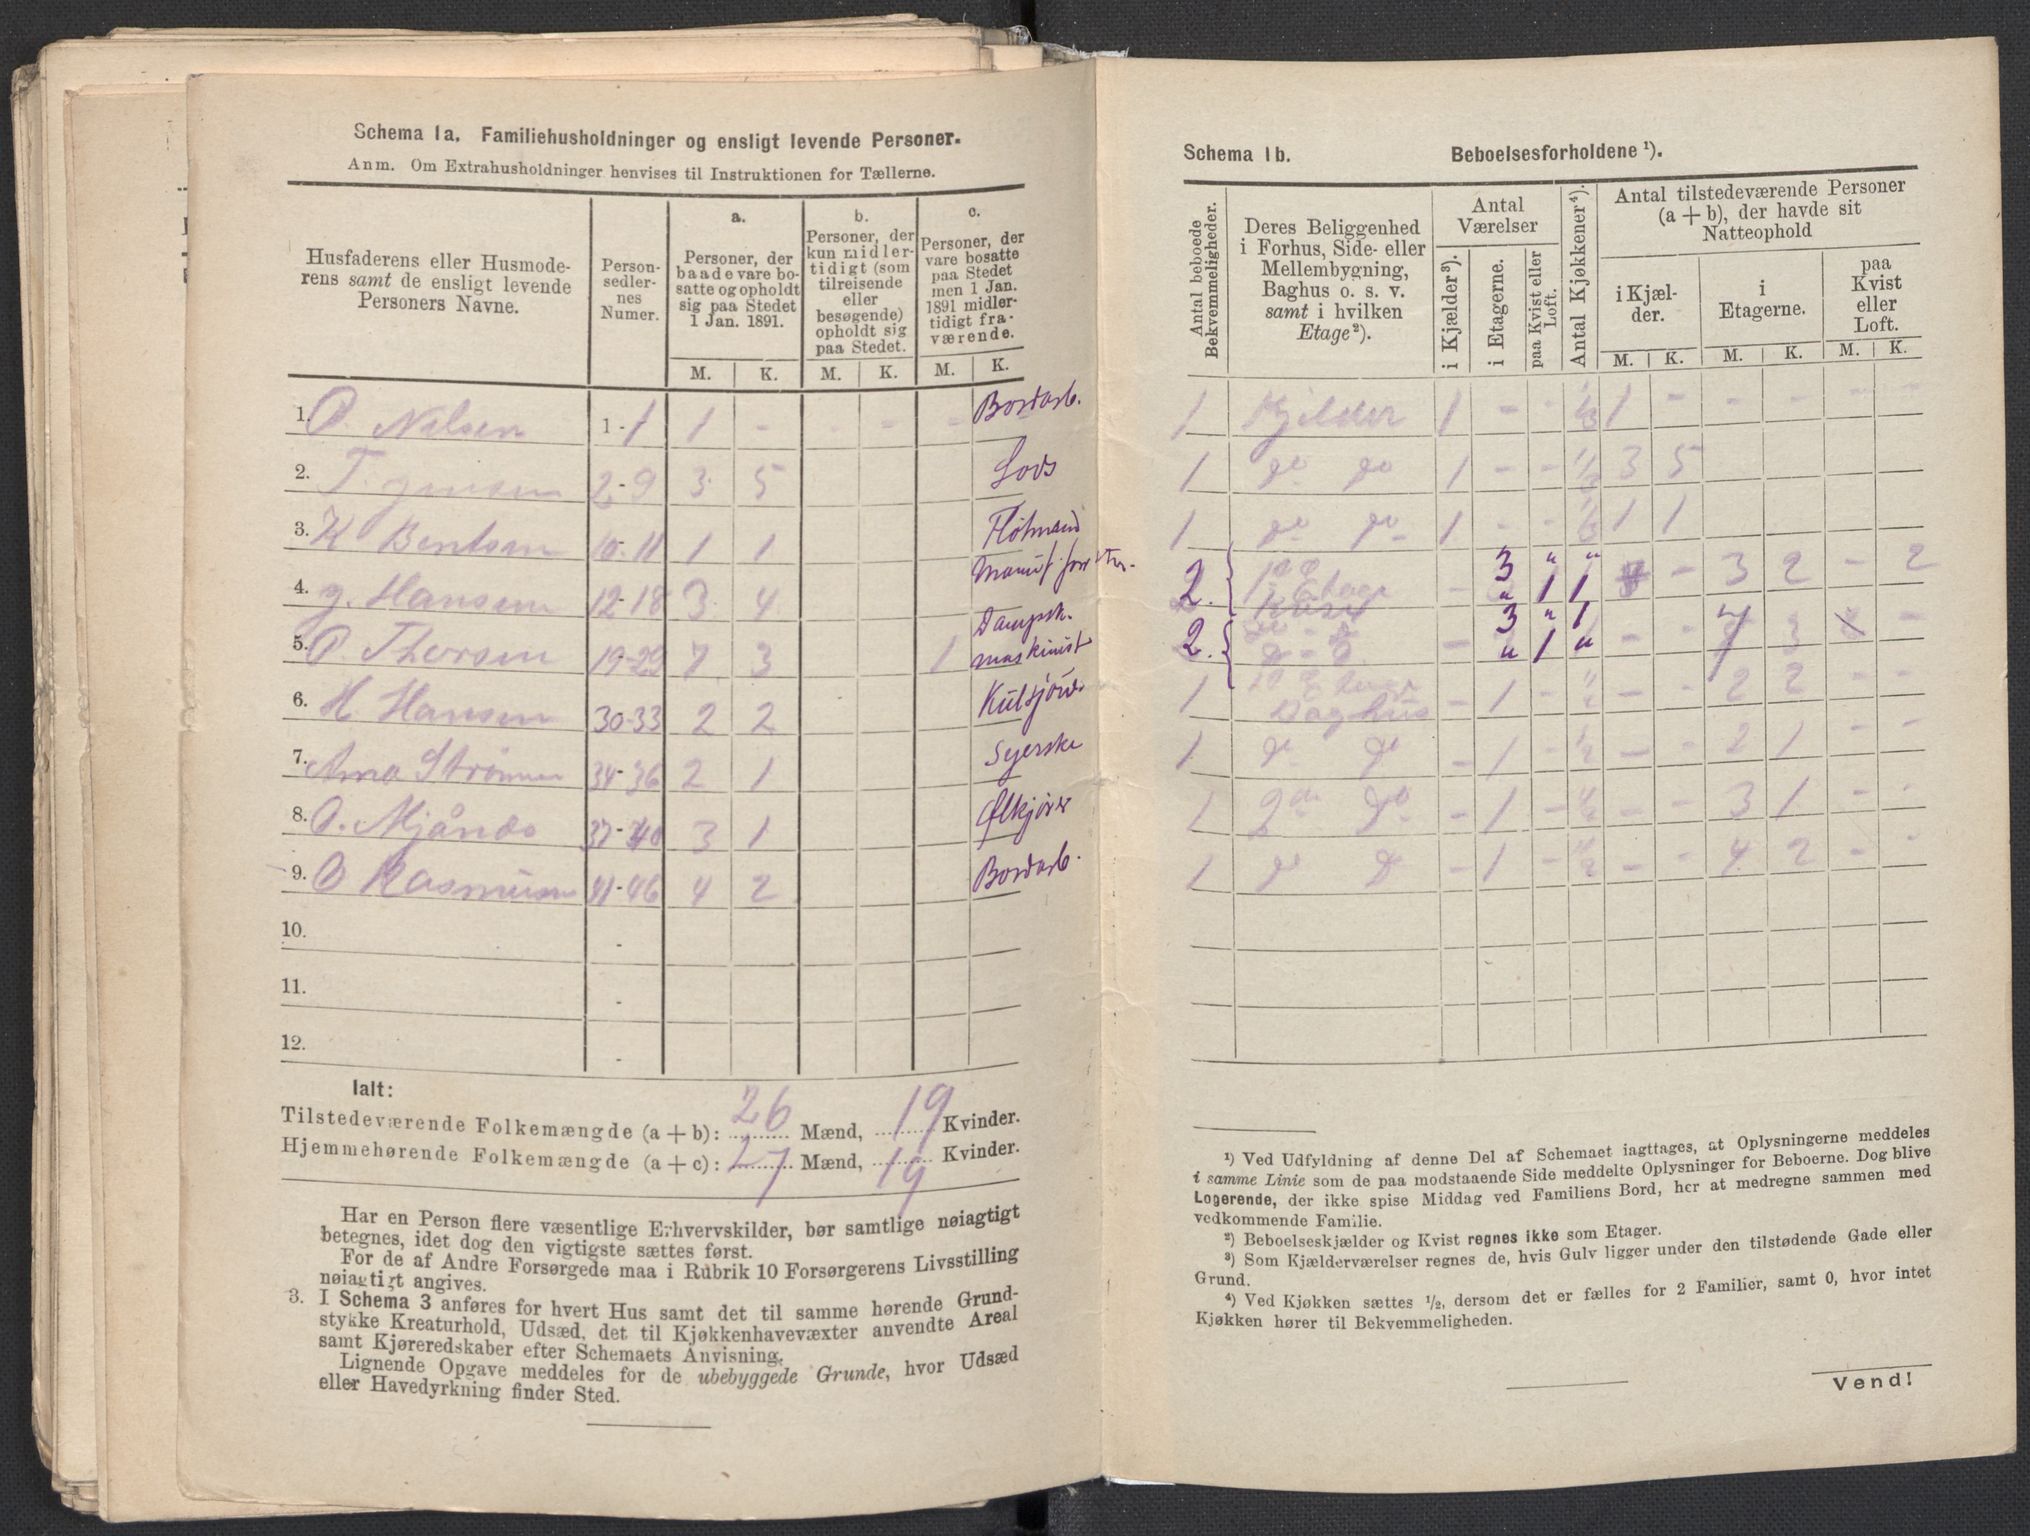 Schema 1a. Familiehusholdninger og ensligt levende Personer.
Anm. Om Extrahusholdninger henvises til Instruktionen for Tællerne.
Husfaderens eller Husmoderens samt de ensligt levende Personers Navne.
Person-sedler-nes Numer.
a. Personer, der baade vare bosatte og opholdt sig paa Stedet 1 Jan. 1891.
b. Personer, der kun midlertidigt (som tilreisende eller besøgende) opholdt sig paa Stedet.
c. Personer, der vare bosatte paa Stedet men 1 Jan. 1891 midlertidigt fraværende.
M. K. M. K. M. K.
1. O. Nilsen 1-1 1 - - - - Bordarb.
2. T. Jensen 2-9 3 5 Lods
3. K Bentsen 10-11 1 1 Fløtmand
4. g. Hansen 12-18 3 4
5. O. Thorsen 19-29 7 3 1 Dampsk. maskinist
6. H. Hansen 30-33 2 2
7. 34-36 2 1 Syerske
8. O. 37-40 3 1 Ølkjører
9. O Rasmusen 41-46 4 2 Bordarb.
10. -
11. -
12. -
Ialt:
Tilstedeværende Folkemængde (a + b): 26 Mænd, 19 Kvinder.
Hjemmehørende Folkemængde (a + c): 27 Mænd, 19 Kvinder.
Har en Person flere væsentlige Erhvervskilder, bør samtlige nøiagtigt
betegnes, idet dog den vigtigste sættes først.
For de af Andre Forsørgede maa i Rubrik 10 Forsørgerens Livsstilling
nøiagtigt angives.
3. I Schema 3 anføres for hvert Hus samt det til samme hørende Grund-
stykke Kreaturhold, Udsæd, det til Kjøkkenhavevæxter anvendte Areal
samt Kjøreredskaber efter Schemaets Anvisning.
Lignende Opgave meddeles for de ubebyggede Grunde, hvor Udsæd
eller Havedyrkning finder Sted.
Schema 1b. Beboelsesforholdene ¹).
Antal beboede Bekvemmeligheder.
Deres Beliggenhed i Forhus, Side- eller Mellembygning, Baghus o. s. v. samt i hvilken Etage²).
Antal Værelser
i Kjælder³).
i Etagerne.
paa Kvist eller Loft.
Antal Kjøkkener⁴).
Antal tilstedeværende Personer (a + b), der havde sit Natteophold
i Kjælder.
i Etagerne.
paa Kvist eller Loft.
M. K. M. K. M. K.
1 Kjelder 1 - - 1 - - - - -
1 do do 1 - - ½ 3 5
1 do do 1 - - 1 1
2. Etage - 3 " " - 3 2 - 2
" 1 1
2. - 3 " 1 - - 7 3 -
" 1 "
1 Etage Baghus - 1 - ½ - - 2 2 - -
1 do do - 1 - ½ - - 2 1 - -
1 2de do - 1 - ½ - - 3 1 - -
1 do do - 1 - ½ - - 4 2 - -
¹) Ved Udfyldning af denne Del af Schemaet iagttages, at Oplysningerne meddeles
i samme Linie som de paa modstaaende Side meddelte Oplysninger for Beboerne. Dog blive
Logerende, der ikke spise Middag ved Familiens Bord, her at medregne sammen med
vedkommende Familie.
²) Beboelseskjælder og Kvist regnes ikke som Etager.
³) Som Kjælderværelser regnes de, hvis Gulv ligger under den tilstødende Gade eller
Grund.
⁴) Ved Kjøkken sættes ½, dersom det er fælles for 2 Familier, samt 0, hvor intet
Kjøkken hører til Bekvemmeligheden.
Vend!